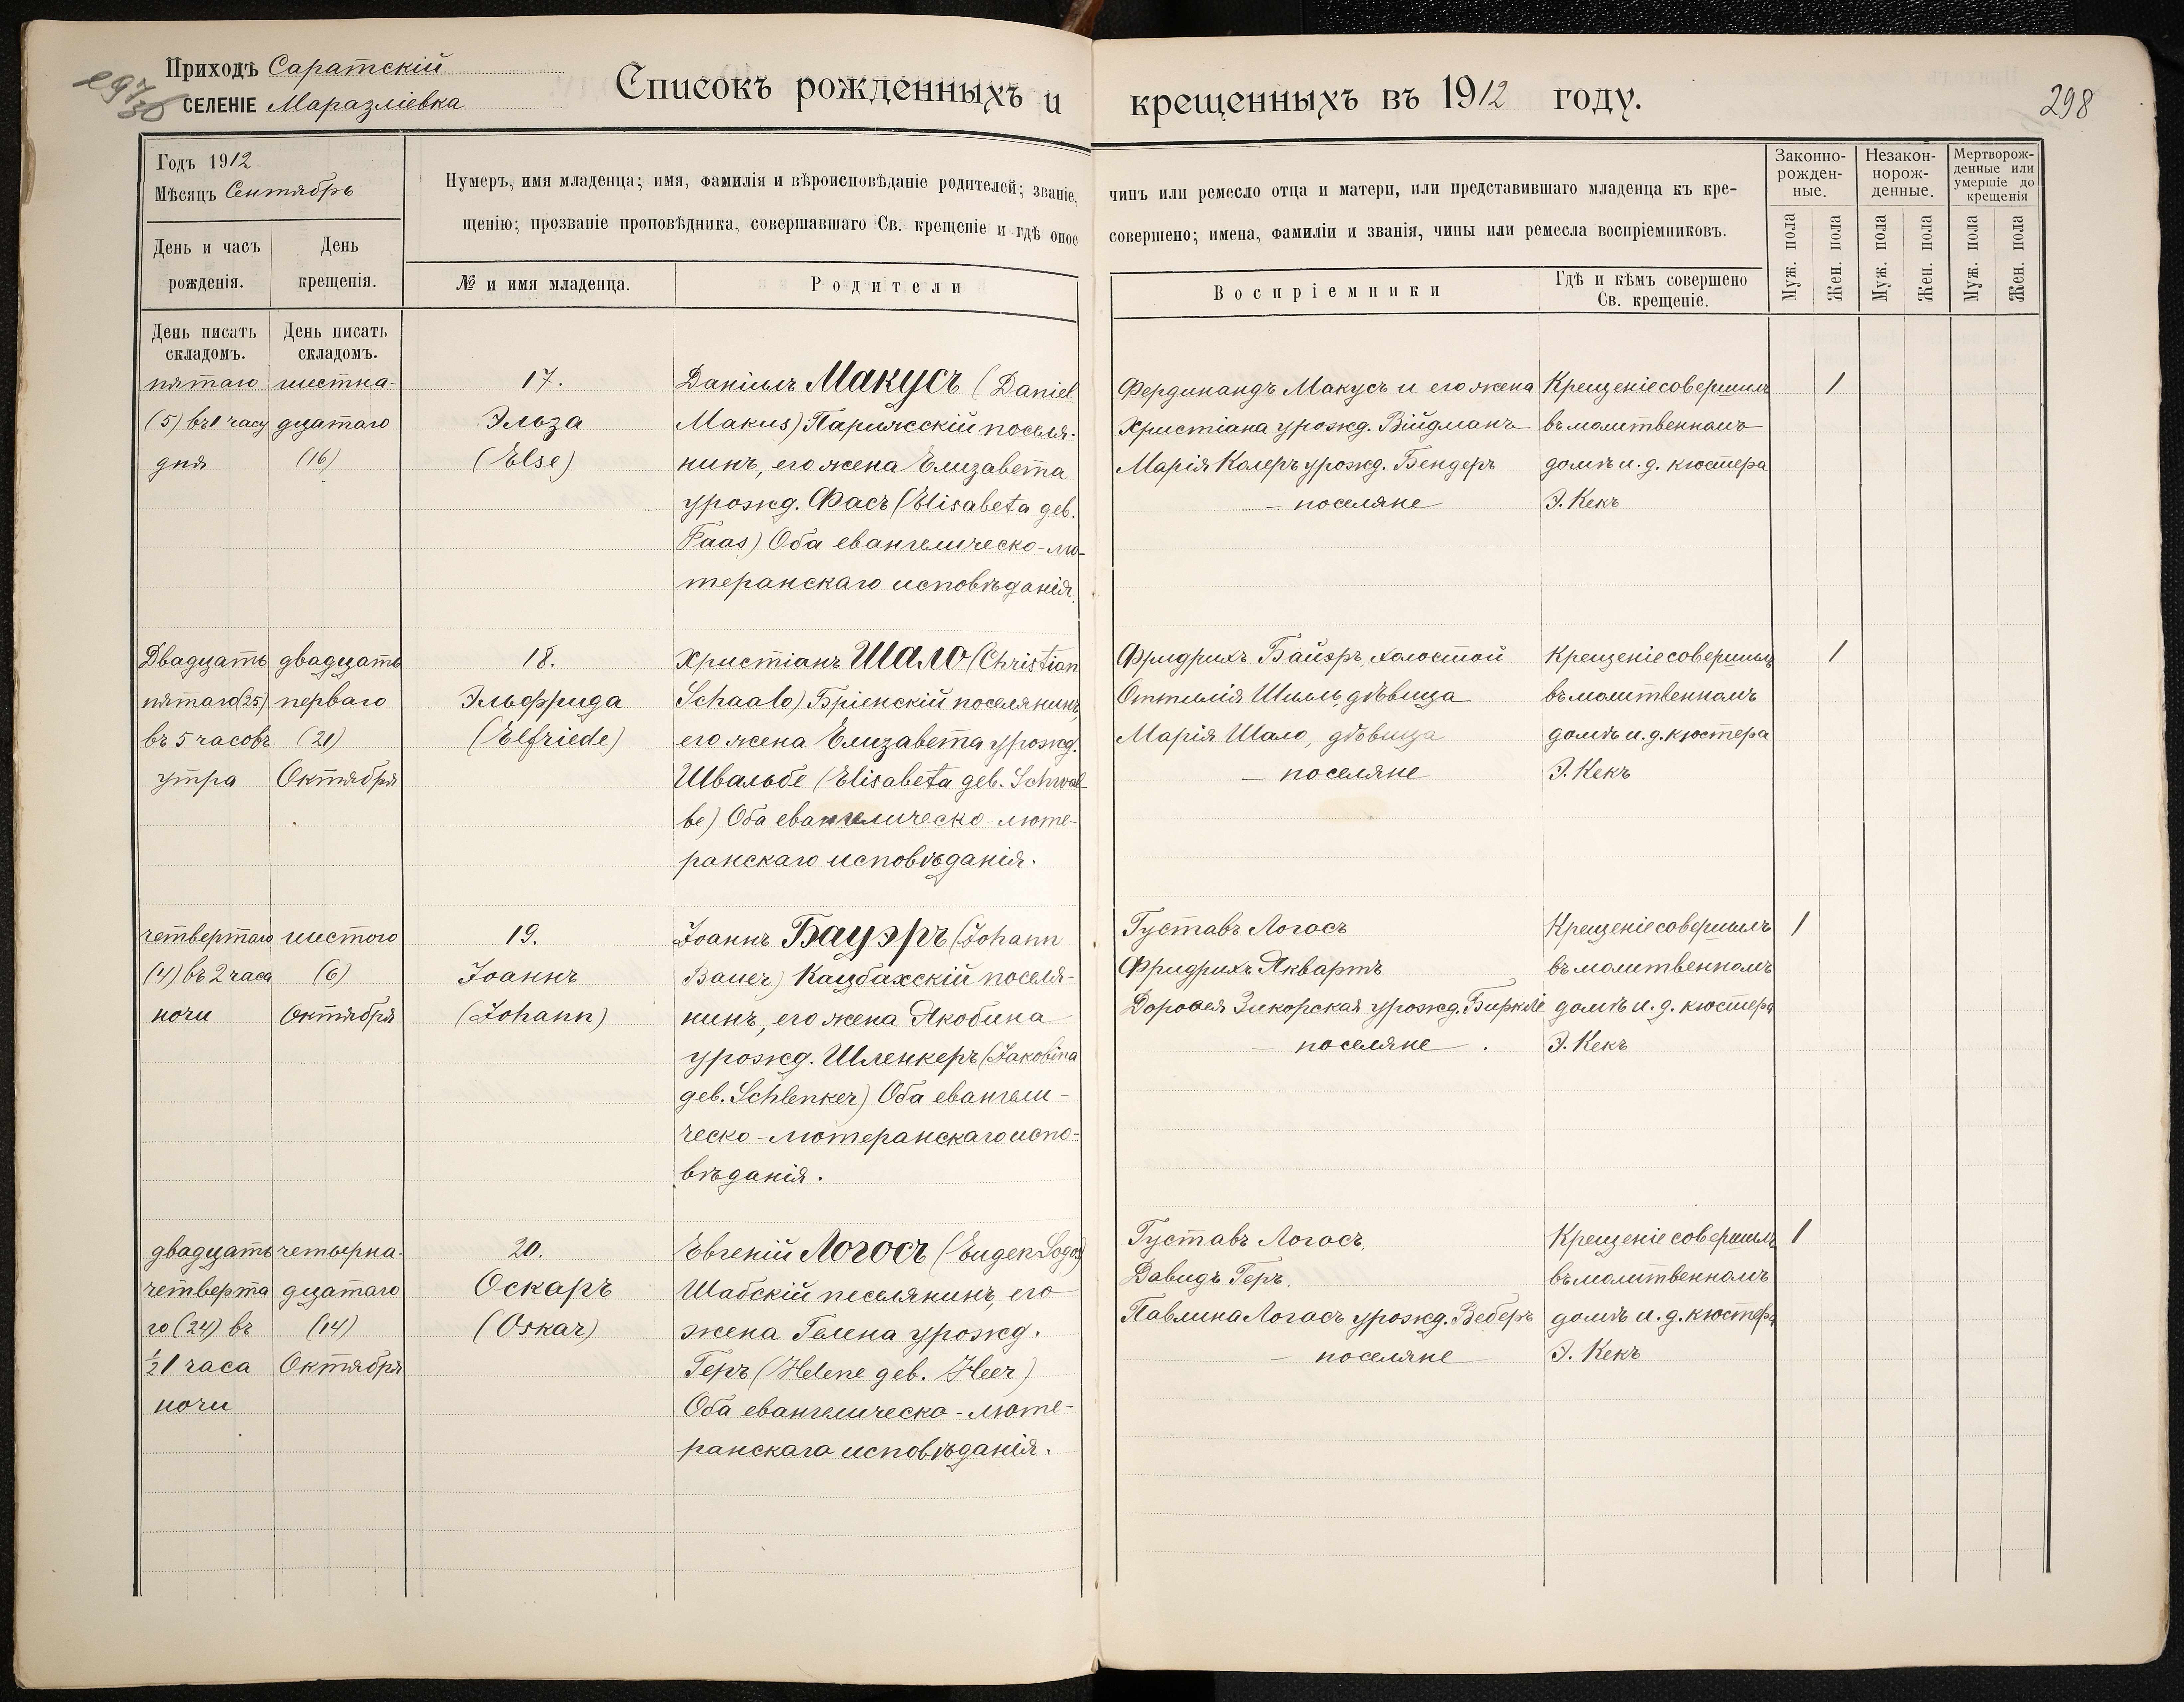 Приходъ Саратскій
СЕЛЕНІЕ Маразліевка
Списокъ рожденныхъ и крещенныхъ въ 1912 году.
298
Годъ 1912
Мѣсяцъ Сентябрь
День и часъ рожденія.
День крещенія.
Нумеръ, имя младенца; имя, фамилія и вѣроисповѣданіе родителей; званіе, чинъ или ремесло отца и матери, или представившаго младенца къ кре-
щенію; прозваніе проповѣдника, совершавшаго Св. крещеніе и гдѣ оное совершено; имена, фамиліи и званія, чины или ремесла воспріемниковъ.
№ и имя младенца.
Родители
Воспріемники
Гдѣ и кѣмъ совершено
Св. крещеніе.
Законно-
рожден-
ные.
Незакон-
норож-
денные.
Мертворож-
денные или
умершіе до
крещенія
Муж. пола
Жен. пола
Муж. пола
Жен. пола
Муж. пола
Жен. пола
День писать
складомъ.
День писать
складомъ.
пятаго
(5) въ 1 часу
дня
шестна-
дцатаго
(16)
17.
Эльза
(Else)
Даніилъ Макусъ (Daniel
Makus) Парижскій поселя-
нинъ, его жена Елизавета
урожд. Фасъ (Elisabeta geb.
Faas) Оба евангелическо-лю-
теранскаго исповѣданія.
Фердинандъ Макусъ и его жена
Христіана урожд. Війдманъ
Марія Колеръ урожд. Бендеръ
– поселяне
Крещеніе совершилъ
въ молитвенномъ
домѣ и. д. кюстера
Э. Кекъ
1
Двадцать
пятаго (25)
въ 5 часовъ
утра
двадцать
перваго
(21)
Октября
18.
Эльфрида
(Elfriede)
Христіанъ Шало (Christian
Schaalo) Бріенскій поселянинъ,
его жена Елизавета урожд.
Швальбе (Elisabeta geb. Schwal-
be) Оба евангелическо-люте-
ранскаго исповѣданія.
Фридрихъ Байэръ, холостой
Оттилія Шилль, дѣвица
Марія Шало, дѣвица
– поселяне
Крещеніе совершилъ
въ молитвенномъ
домѣ и. д. кюстера
Э. Кекъ
1
четвертаго
(4) въ 2 часа
ночи
шестого
(6)
Октября
19.
Іоаннъ
(Johann)
Іоаннъ Бауэръ (Johann
Bauer) Кацбахскій поселя-
нинъ, его жена Якобина
урожд. Шленкеръ (Jakobina
geb. Schlenker) Оба евангели-
ческо-лютеранскаго испо-
вѣданія.
Густавъ Логосъ
Фридрихъ Яквартъ
Доровея Зикорская урожд. Биркле
– поселяне
Крещеніе совершилъ
въ молитвенномъ
домѣ и. д. кюстера
Э. Кекъ
1
двадцать
четверта
го (24) въ
½1 часа
ночи
четырна-
дцатаго
(14)
Октября
20.
Оскаръ
(Oskar)
Евгеній Логосъ (Eugen Logos)
Шабскій поселянинъ, его
жена Гелена урожд.
Геръ (Helene geb. Heer)
Оба евангелическо-люте-
ранскаго исповѣданія.
Густавъ Логосъ
Давидъ Геръ.
Павлина Логосъ урожд. Веберъ
– поселяне
Крещеніе совершилъ
въ молитвенномъ
домѣ и. д. кюстера
Э. Кекъ
1